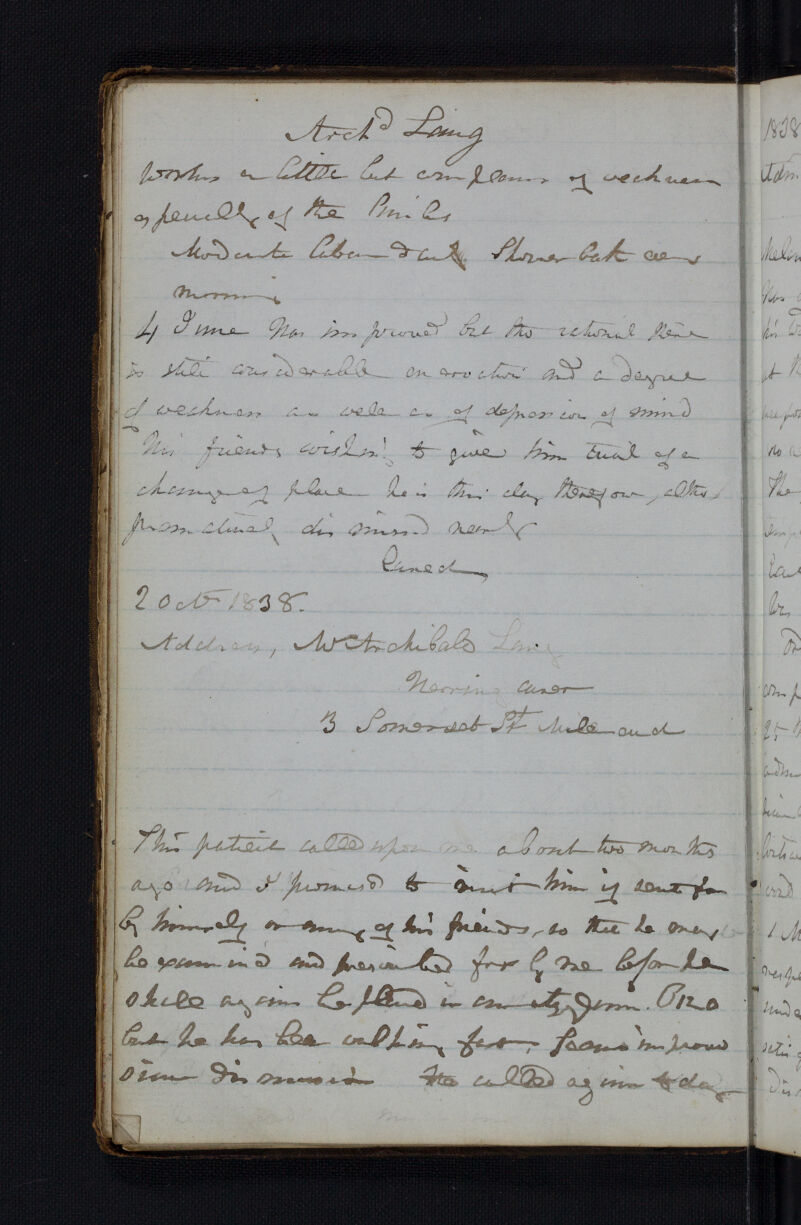 Arch^d Laing
Works a little but complains of weakness
especially of the limbs
Moderate labour & Shower bath every
morning
4 June Has improved but tho rational there
is still considerable enervation and a degree
of weakness as well as of depression of mind
His friends wishing to give him trial of a
change of place he is this day therefore, altho
prematurely dismissed nearly
Cured
2 Oct^r 1838.
Address, M^r Archibald Laing
Herring curer
3 Somerset S^t Mile end
This patient called upon me about two months
ago and I promised to visit him if sent for
by himself or any of his friends, so that he may
be examined and prescribed for by me before he
shall again be placed in an asylum.
but he has been walking seems improved
since dismission He called again to day
1838
Adm